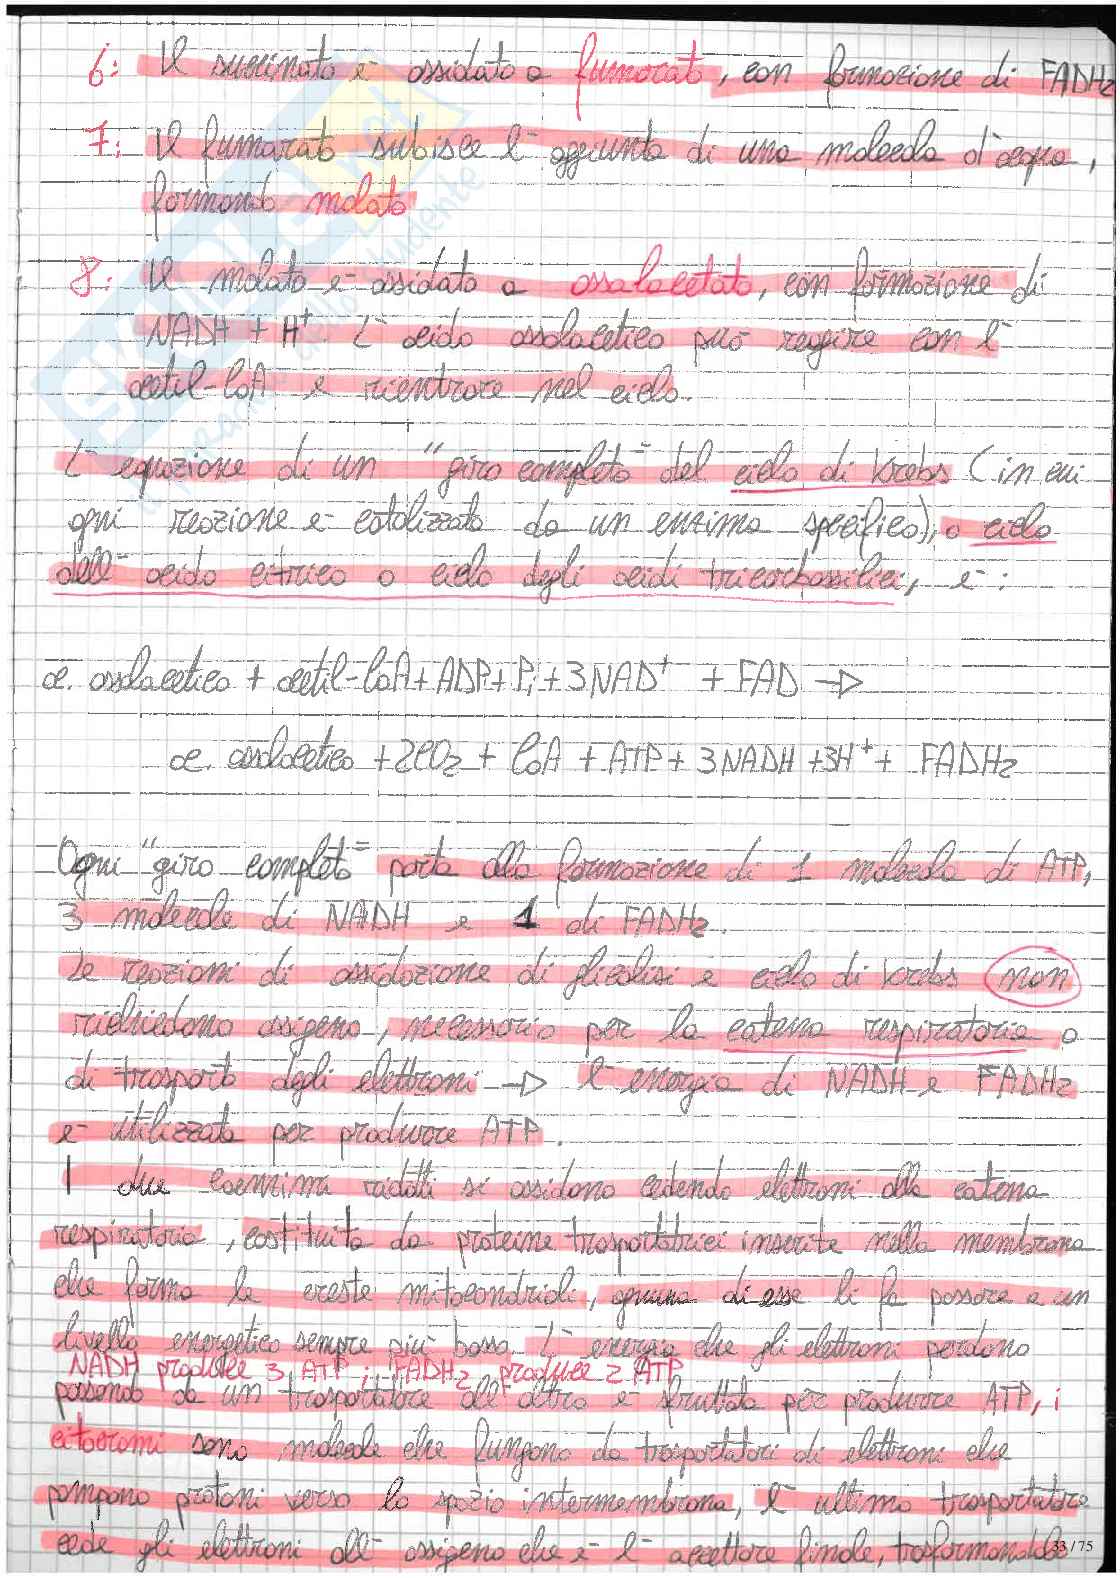 6: Il succinato è ossidato a fumarato, con formazione di FADH2
7: Il fumarato subisce l'aggiunta di una molecola d'acqua,
formando malato
8: Il malato è ossidato a ossalacetato, con formazione di
NADH + H+. L'acido ossalacetico può reagire con l'
acetil-CoA e rientrare nel ciclo.
L'equazione di un "giro completo" del ciclo di Krebs (in cui
ogni reazione è catalizzata da un enzima specifico), o ciclo
dell'acido citrico o ciclo degli acidi tricarbossilici, è:
ac. ossalacetico + acetil-CoA + ADP + Pi + 3NAD+ + FAD →
ac. ossalacetico + 2CO2 + CoA + ATP + 3NADH + 3H+ + FADH2
Ogni "giro completo" porta alla formazione di 1 molecola di ATP,
3 molecole di NADH e 1 di FADH2.
Le reazioni di ossidazione di glicolisi e ciclo di Krebs non
richiedono ossigeno, necessario per la catena respiratoria o
di trasporto degli elettroni → l'energia di NADH e FADH2
è utilizzata per produrre ATP.
I due coenzimi ridotti si ossidano cedendo elettroni alla catena
respiratoria, costituita da proteine trasportatrici inserite nella membrana
che forma le creste mitocondriali, ognuna di esse li fa passare a un
livello energetico sempre più basso. L'energia che gli elettroni perdono
NADH produce 3 ATP; FADH2 produce 2 ATP
passando da un trasportatore all'altro è sfruttata per produrre ATP, i
citocromi sono molecole che fungono da trasportatori di elettroni che
pompano protoni verso lo spazio intermembrana, l'ultimo trasportatore
cede gli elettroni all'ossigeno che è l'accettore finale, trasformandolo
33 / 75